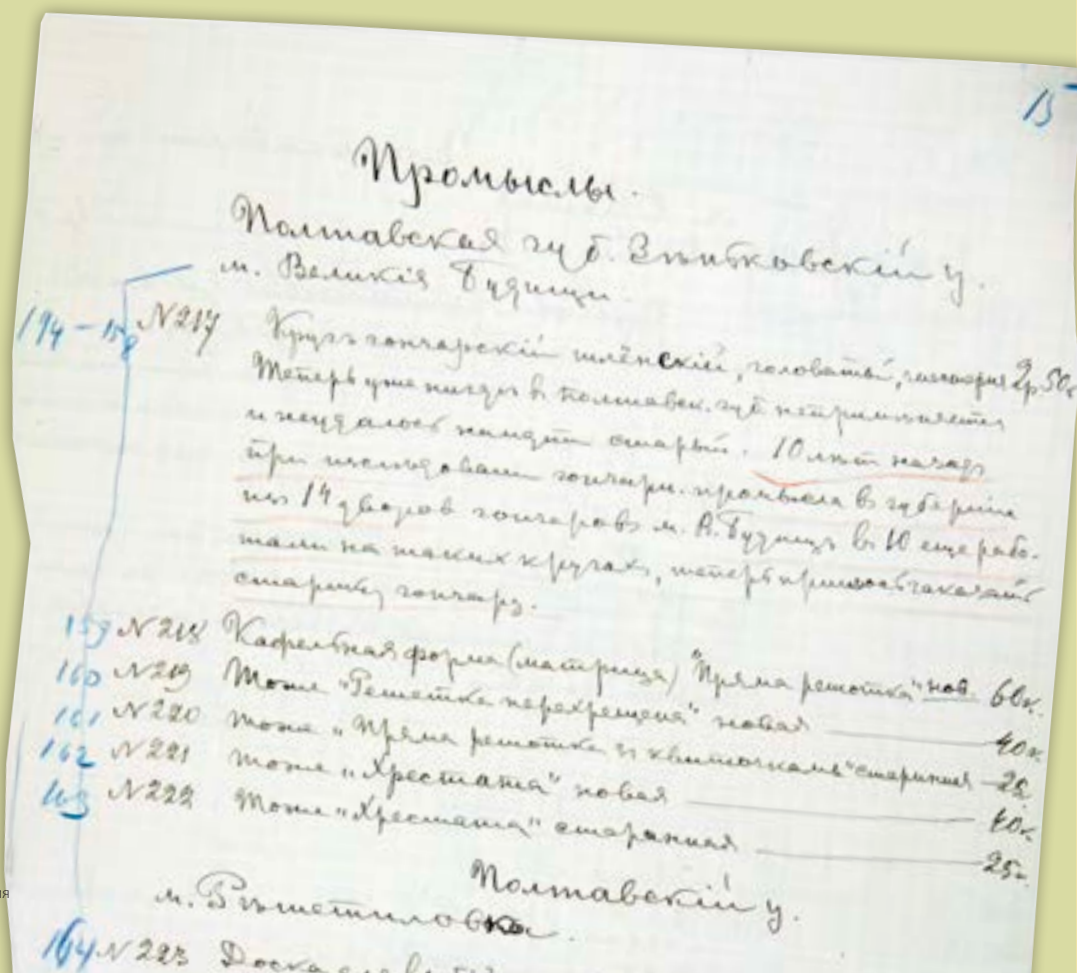 15
Промыслы.
Полтавская губ. Зѣньковскій у.
м. Великія Будищи.
194 – 158 №217 Кругъ гончарскій шлёнский, головатый, 2р.50к
Теперь уже нигдѣ в Полтавск. губ не примѣняется
и неудалось найдти старый. 10 лѣт назадъ
при изслѣдовании гончарн. промысла в губернии
из 14 дворов гончаровъ м. В. Будищъ въ 10 еще рабо-
тали на таких кругахъ, теперь пришлось заказать
старику гончару.
159 №218 Кафельная форма (матрица) "Пряма решотка" нов. 60к.
160 №219 Тоже "Решетка перехрещена" новая 40к.
161 №220 Тоже „Пряма решотка з квиточками" старинная 25
162 №221 Тоже „Хрестата" новая 40к.
163 №222 Тоже „Хрестата" старинная 25к.
Полтавскій у.
м. Рѣшетиловка.
164 №223 Доска
ия